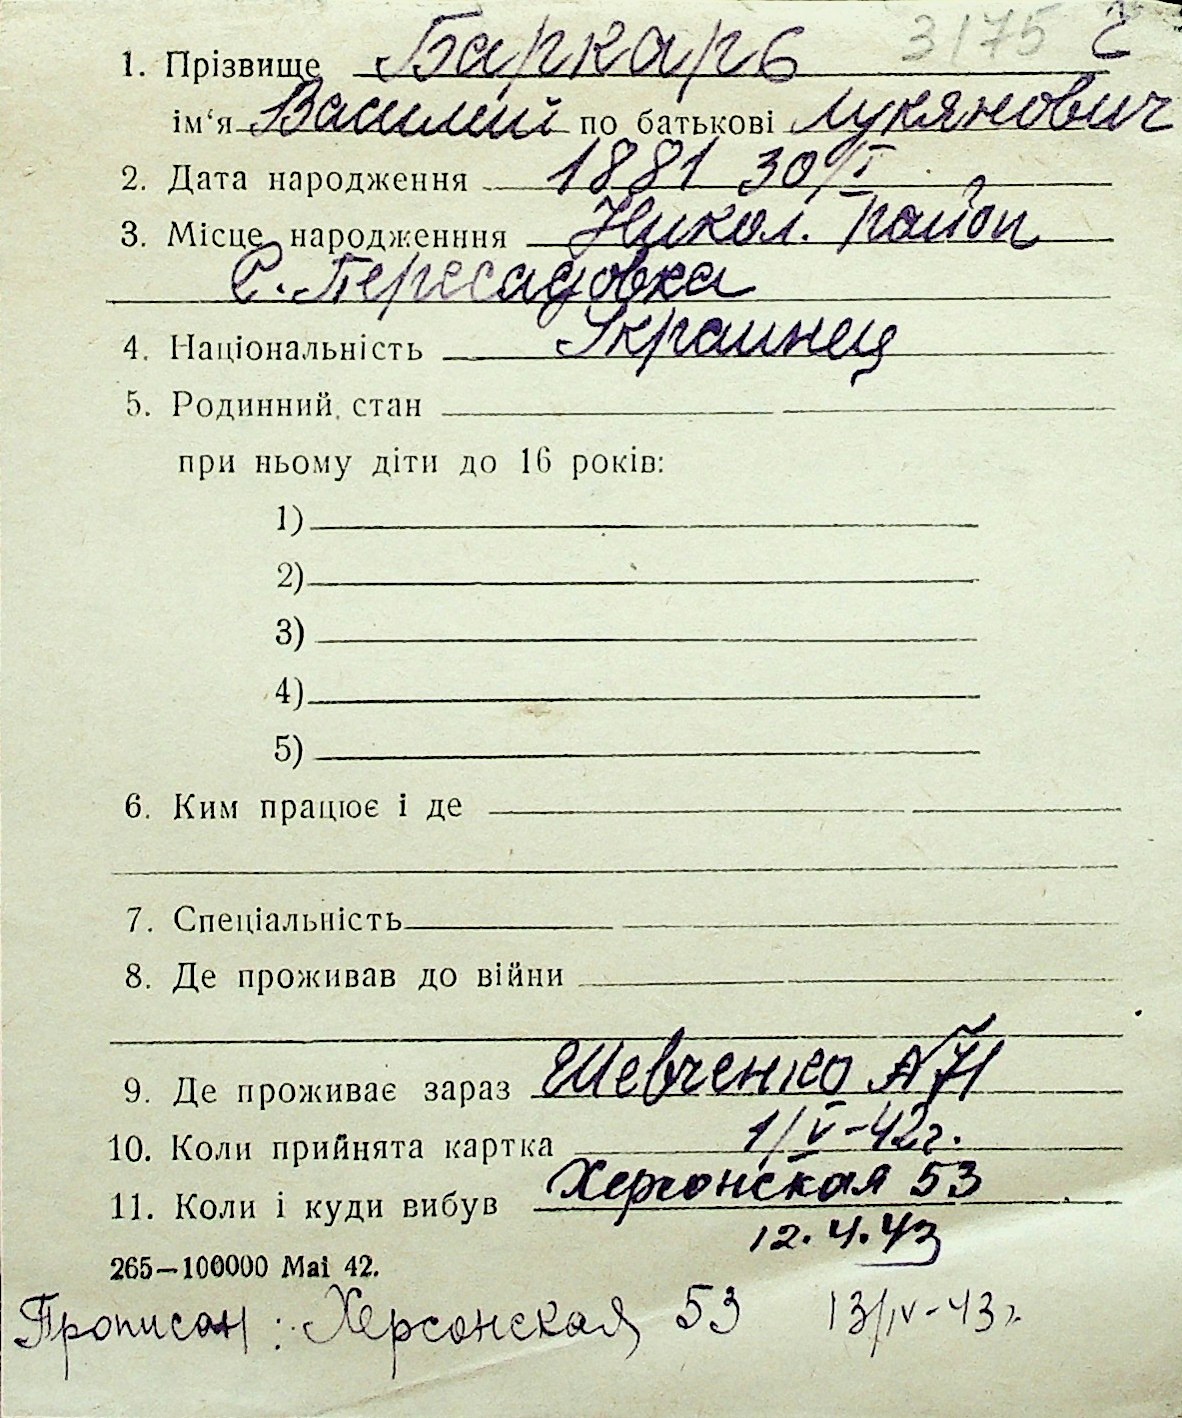 3175
1. Прізвище Баркарь
ім‘я Василий по батькові Лукянович
2. Дата народження 1881 30/I
3. Місце народженння Никол. район
с. Пересадовка
4. Національність Украинец
5. Родинний стан
при ньому діти до 16 років:
1)
2)
3)
4)
5)
6. Ким працює і де
7. Спеціальність
8. Де проживав до війни
9. Де проживає зараз Шевченко №71
10. Коли прийнята картка 1/V-42г.
11. Коли і куди вибув Херсонская 53
12.4.43
265—100000 Mai 42.
Прописан: Херсонская 53 13/IV-43г.